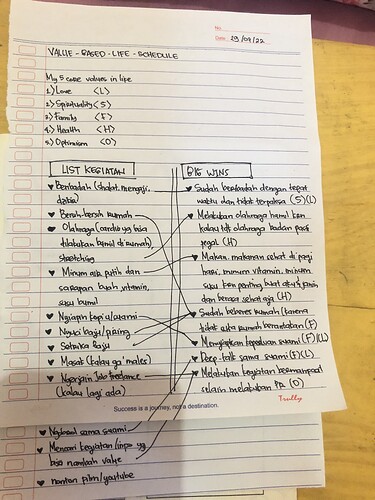 No.
Date. 29/09/22
VALUE - BASED - LIFE - SCHEDULE
My 5 core values in life
1.) Love <L>
2.) Spirituality <S>
3.) Family <F>
4.) Health <H>
5.) Optimism <O>
LIST KEGIATAN
Beribadah (sholat, mengaji,
dzikir)
Bersih-bersih rumah
Olahraga (cardio yg bisa
dilakukan bumil di rumah)
stretching
Minum air putih dan
sarapan buah, vitamin,
susu bumil
Nyiapin kopi/
Nyuci baju/piring
Setrika baju
Masak (kalau ga' males)
Ngerjain Job freelance
(kalau lagi ada)
BIG WINS
Sudah beribadah dengan tepat
waktu dan tidak terpaksa (S)(L)
Melakukan olahraga hamil krn
kalau tdk olahraga badan pasti
pegal (H)
Makan makanan sehat di pagi
hari, minum vitamin, minum
susu krn penting buat aku & janin
dan berasa sehat aja (H)
Sudah beberes rumah (karena
tidak suka rumah berantakan) (F)
Menyiapkan keperluan suami (F)(L)
Deep-talk sama suami (F)(L)
Melakukan kegiatan bermanfaat
selain melakukan PR (O)
Success is a journey, not a destination.
Trully
Ngobrol sama suami
Mencari kegiatan/ yg
bisa nambah value
nonton film/youtube